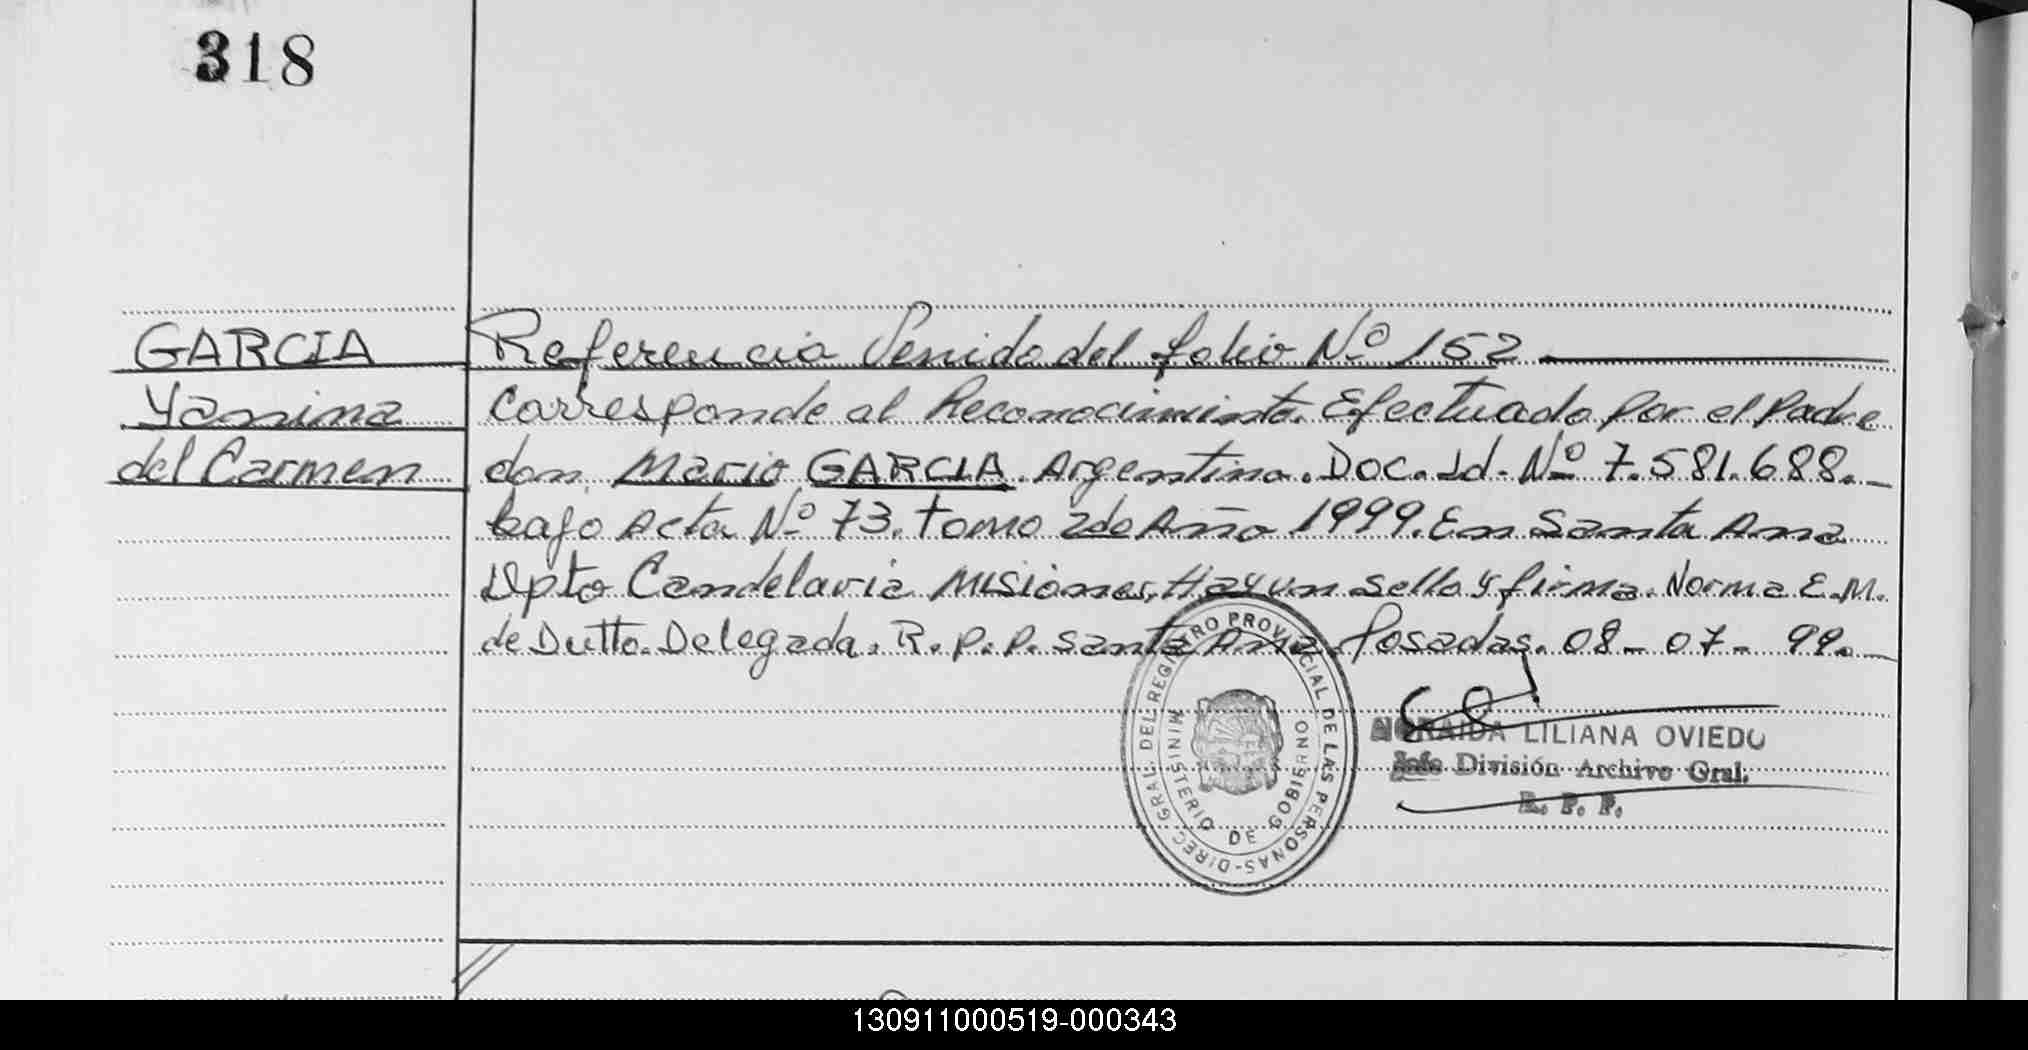 318
GARCIA
Yanina
del Carmen
Referencia Venido del folio Nº 152
Corresponde al Reconocimiento. Efectuado por el Padre
don Mario GARCIA. Argentino. Doc. Id. Nº 7.581.688.
bajo Acta Nº 73. tomo 2do Año 1999. En Santa Ana
Dpto Candelaria Misiones, Hay un sello y firma. Norma E. M.
de Dutto. Delegada. R. P. P. Santa Ana. Posadas. 08-07-99.
DIREC. GRAL DEL REGISTRO PROVINCIAL DE LAS PERSONAS-
MINISTERIO DE GOBIERNO
NORAIDA LILIANA OVIEDO
Jefe División Archivo Gral.
R. P. P.
130911000519-000343